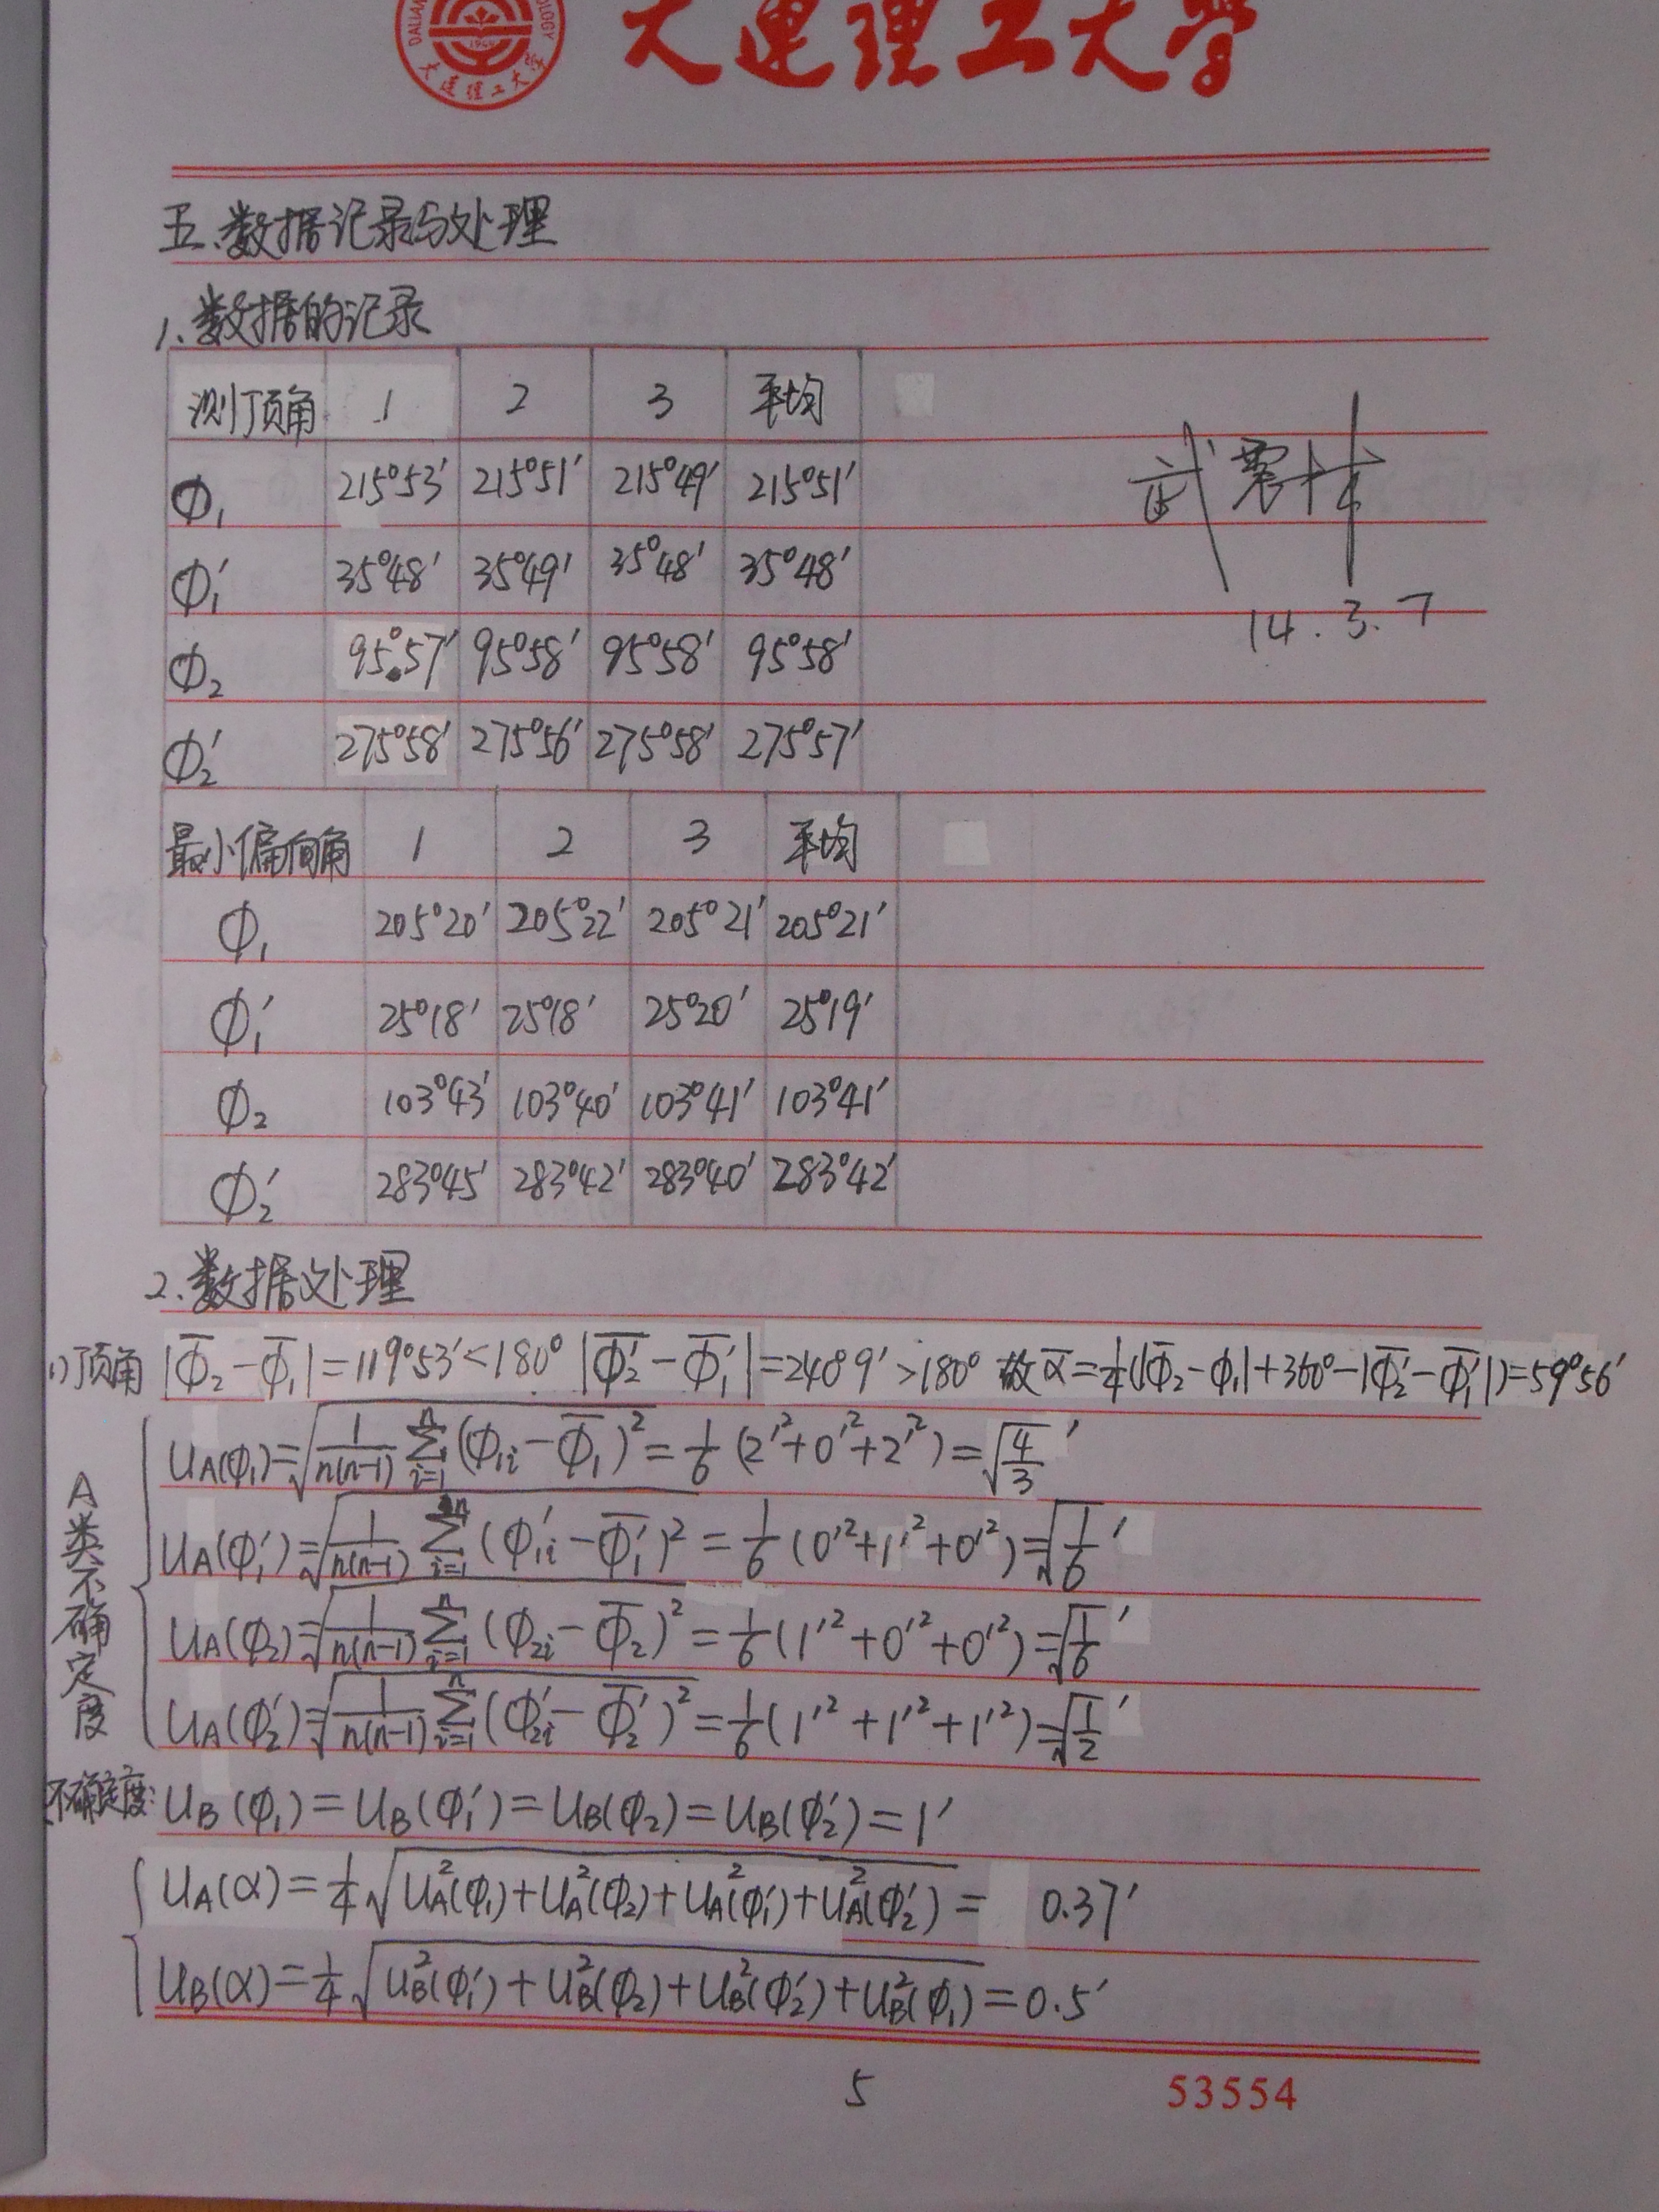 DALIAN
OLOGY
1949
大连理工大学
大連理工大學
五.数据记录与处理
1.数据的记录
测顶角 1 2 3 平均
Φ₁ 215°53′ 215°51′ 215°49′ 215°51′
Φ₁′ 35°48′ 35°49′ 35°48′ 35°48′
Φ₂ 95°57′ 95°58′ 95°58′ 95°58′
Φ₂′ 275°58′ 275°56′ 275°58′ 275°57′
武震林
14.3.7
最小偏向角 1 2 3 平均
Φ₁ 205°20′ 205°22′ 205°21′ 205°21′
Φ₁′ 25°18′ 25°18′ 25°20′ 25°19′
Φ₂ 103°43′ 103°40′ 103°41′ 103°41′
Φ₂′ 283°45′ 283°42′ 283°40′ 283°42′
2.数据处理
(1)顶角 |Φ̄₂-Φ̄₁|=119°53′<180° |Φ̄₂′-Φ̄₁′|=240°9′>180° 故ᾱ=¼(|Φ̄₂-Φ₁|+360°-|Φ̄₂′-Φ̄₁′|)=59°56′
A类不确定度
U_A(Φ₁)=√(1/(n(n-1)) Σᵢ₌₁ⁿ(Φ₁ᵢ-Φ̄₁)²)=1/6(2′²+0′²+2′²)=√(4/3)′
U_A(Φ₁′)=√(1/(n(n-1)) Σᵢ₌₁ⁿ(Φ₁ᵢ′-Φ̄₁′)²)=1/6(0′²+1′²+0′²)=√(1/6)′
U_A(Φ₂)=√(1/(n(n-1)) Σᵢ₌₁ⁿ(Φ₂ᵢ-Φ̄₂)²)=1/6(1′²+0′²+0′²)=√(1/6)′
U_A(Φ₂′)=√(1/(n(n-1)) Σᵢ₌₁ⁿ(Φ₂ᵢ′-Φ̄₂′)²)=1/6(1′²+1′²+1′²)=√(1/2)′
不确定度: U_B(Φ₁)=U_B(Φ₁′)=U_B(Φ₂)=U_B(Φ₂′)=1′
U_A(α)=¼√(U_A²(Φ₁)+U_A²(Φ₂)+U_A²(Φ₁′)+U_A²(Φ₂′))= 0.37′
U_B(α)=¼√(U_B²(Φ₁′)+U_B²(Φ₂)+U_B²(Φ₂′)+U_B²(Φ₁))=0.5′
5
53554